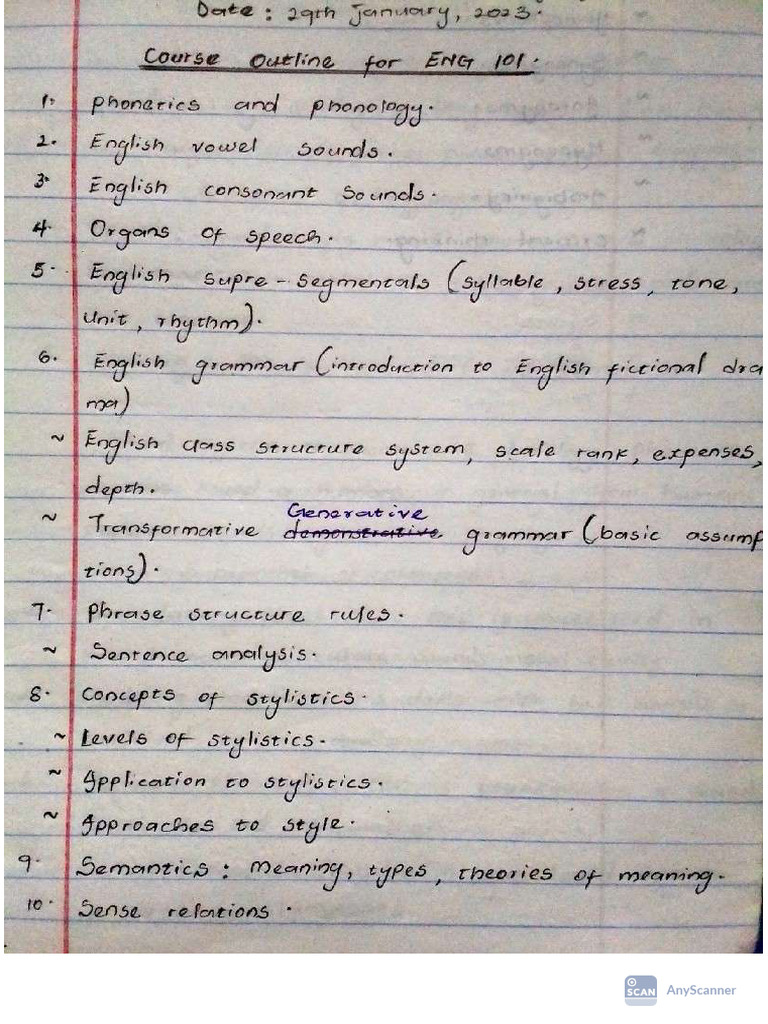 Date : 29th January, 2023.
Course Outline for ENG 101.
1. Phonetics and phonology.
2. English vowel sounds.
3. English consonant sounds.
4. Organs of speech.
5. English supre-segmentals (syllable, stress, tone,
unit, rhythm).
6. English grammar (introduction to English fictional dra
ma)
~ English class structure system, scale rank, expenses,
depth.
Generative
~ Transformative demonstrative grammar (basic assump
tions).
7. Phrase structure rules.
~ Sentence analysis.
8. Concepts of stylistics.
~ Levels of stylistics.
~ Application to stylistics.
~ Approaches to style.
9. Semantics : Meaning, types, theories of meaning.
10. Sense relations.
SCAN AnyScanner